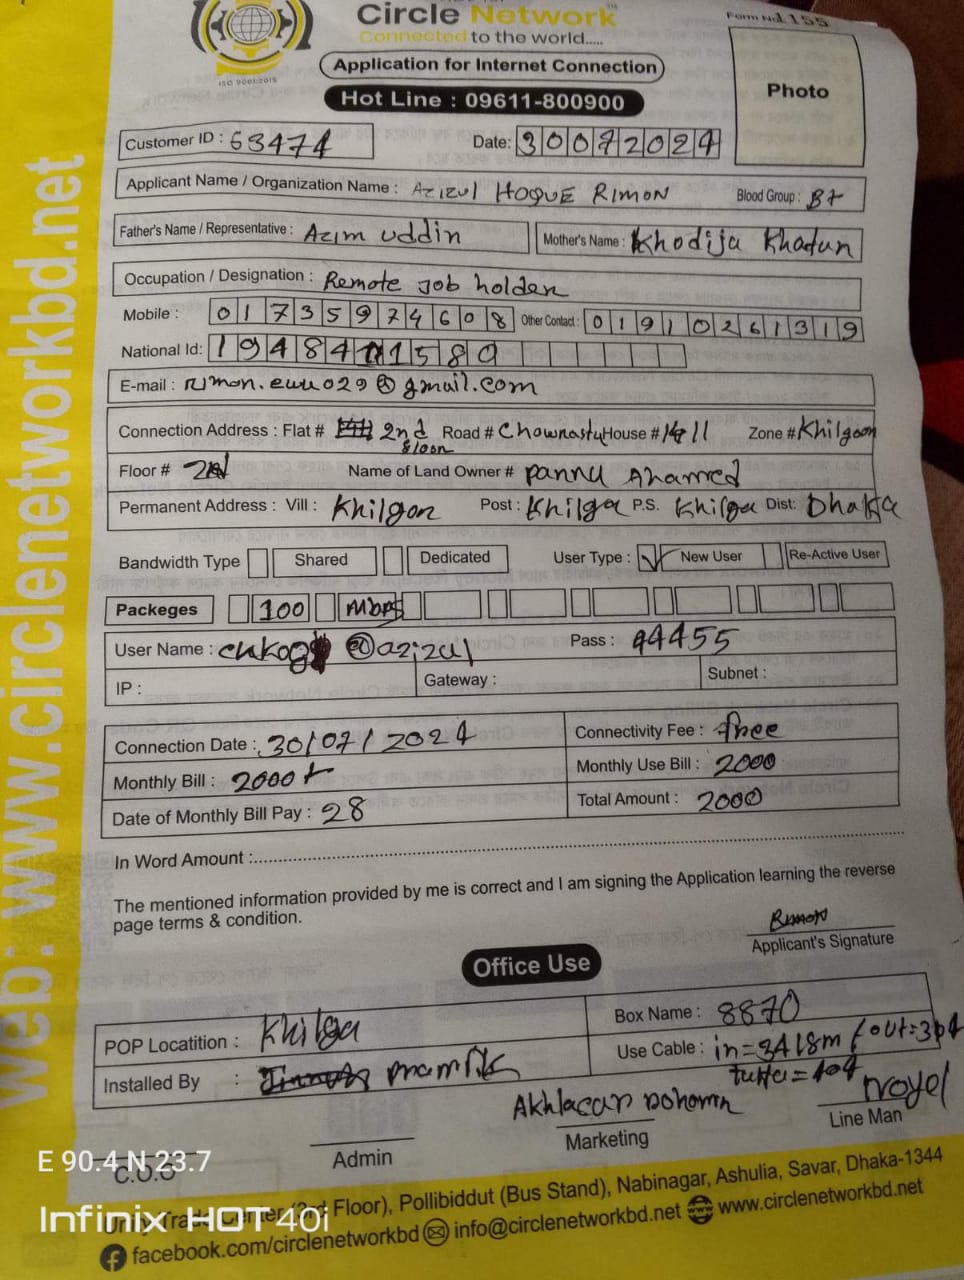 Circle Network™
Form No. 1155
Connected to the world.....
ISO 9001:2015
Application for Internet Connection
Hot Line : 09611-800900
Photo
Customer ID : 63474 Date: 30072024
Applicant Name / Organization Name : Azizul HOQUE RIMON Blood Group : B+
Father's Name / Representative : Azim uddin Mother's Name : Khodija Khatun
Occupation / Designation : Remote Job holder
Mobile : 01735974608 Other Contact : 01910261319
National Id: 1948411580
E-mail : rimon.ewu029@gmail.com
Connection Address : Flat # 2nd floor Road # Chowrasta House # Zone # Khilgaon
Floor # Name of Land Owner # pannu Ahamed
Permanent Address : Vill : Khilgon Post : Khilga P.S. Khilga Dist: Dhaka
Bandwidth Type Shared Dedicated User Type : ✓ New User Re-Active User
Packeges 100 Mbps
User Name : @azizul Pass : 44455
IP : Gateway : Subnet :
Connection Date : 30/07/2024 Connectivity Fee : free
Monthly Bill : 2000 Monthly Use Bill : 2000
Date of Monthly Bill Pay : 28 Total Amount : 2000
In Word Amount :
The mentioned information provided by me is correct and I am signing the Application learning the reverse
page terms & condition.
Rimon
Applicant's Signature
Office Use
POP Locatition : Khilga Box Name : 8870
Installed By : Use Cable :
Noyel
C.O.O Admin Marketing Line Man
Floor), Pollibiddut (Bus Stand), Nabinagar, Ashulia, Savar, Dhaka-1344
facebook.com/circlenetworkbd info@circlenetworkbd.net www.circlenetworkbd.net
web: www.circlenetworkbd.net
E 90.4 N 23.7
Infinix HOT 40i